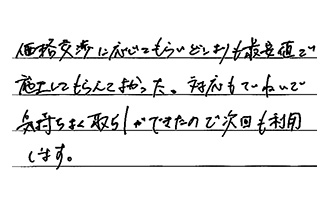 価格交渉に応じてもらいどこよりも最安値で
施工してもらえてよかった。対応もていねいで
気持ちよく取引ができたので次回も利用
します。